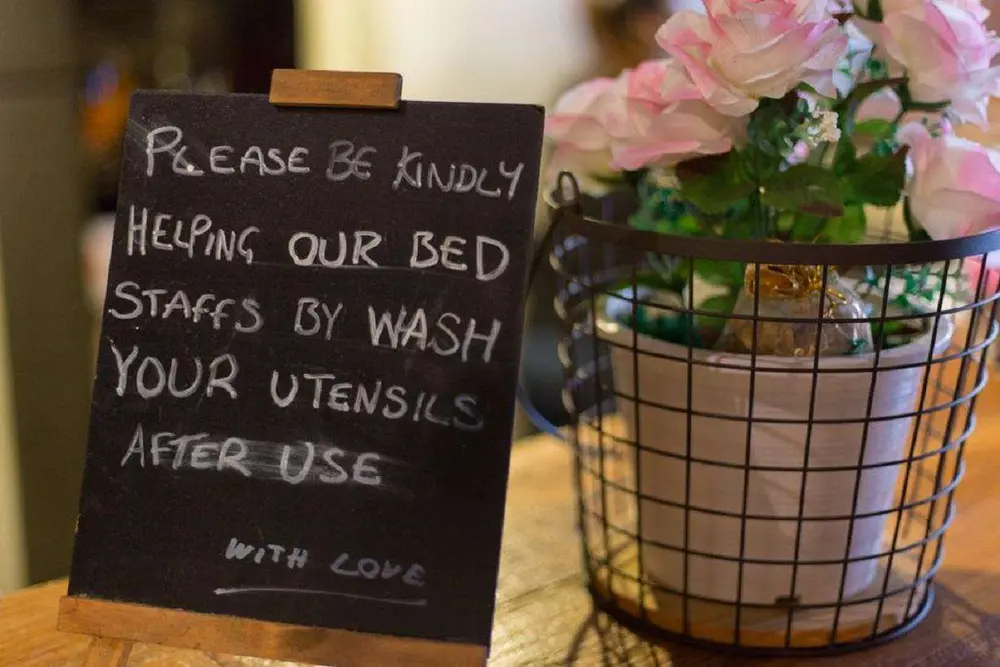 PLEASE BE KINDLY
HELPING OUR BED
STAFFS BY WASH
YOUR UTENSILS
AFTER USE
WITH LOVE